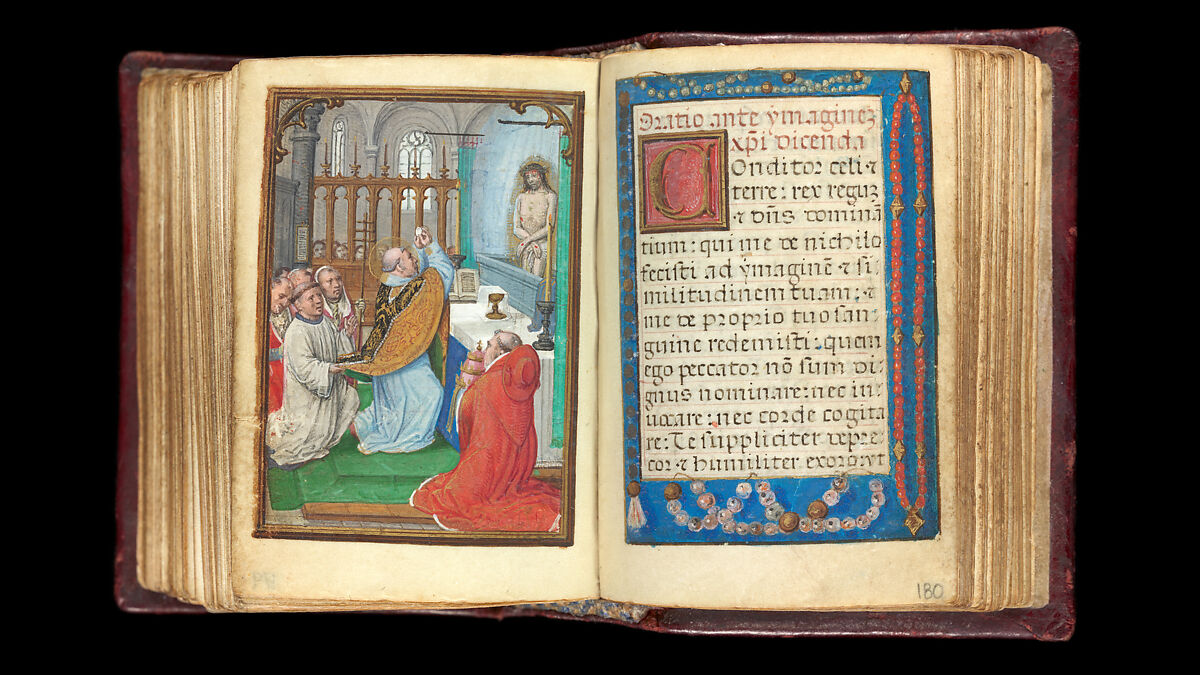 Oratio ante ymaginez
xp̄i dicenda
Conditor celi ⁊
terre: rex reguz
⁊ dn̄s dominā
tium: qui me de nichilo
fecisti ad ymaginē ⁊ si:
militudinem tuam: ⁊
me de proprio tuo san:
guine redemisti: quem
ego peccator nō sum di:
gnus nominare: nec in:
uocare: nec corde cogita
re: Te suppliciter depre:
cor ⁊ humiliter exoro: vt
180